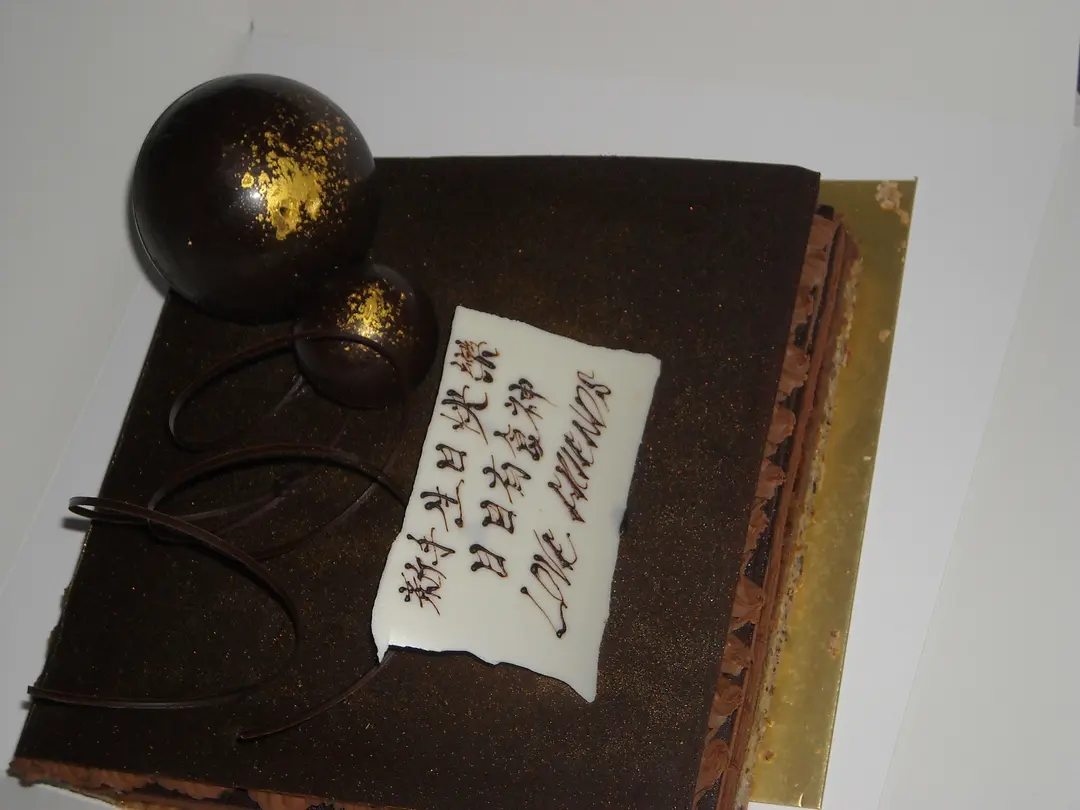 生日快樂
日日有食神
LOVE. FRIENDS